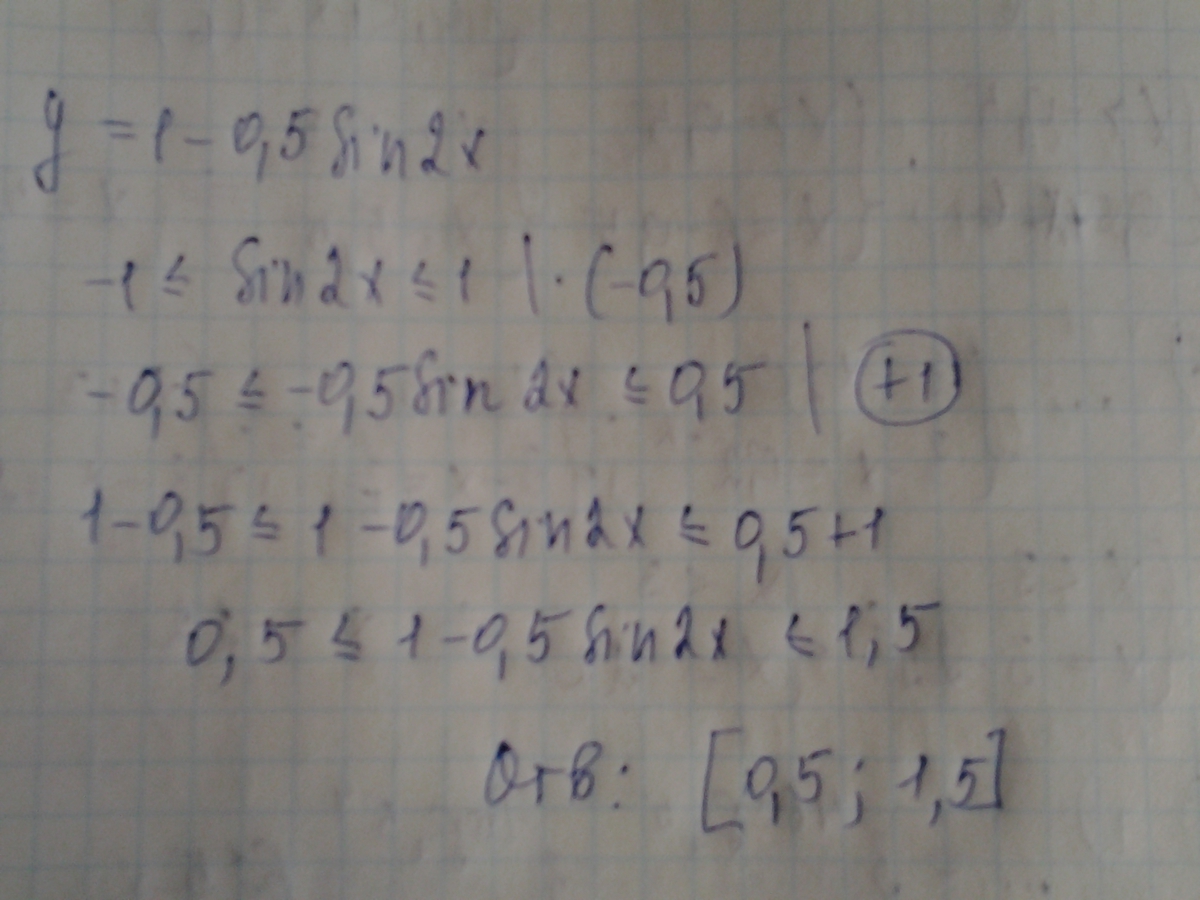 y = 1 - 0,5 sin 2x
-1 ≤ sin 2x ≤ 1 | · (-0,5)
-0,5 ≤ -0,5 sin 2x ≤ 0,5 | +1
1 - 0,5 ≤ 1 - 0,5 sin 2x ≤ 0,5 + 1
0,5 ≤ 1 - 0,5 sin 2x ≤ 1,5
Отв: [0,5; 1,5]